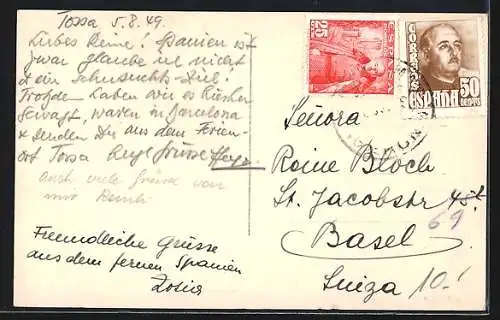 Tossa 5.8.49.
Liebes Reine! Spanien ist
zwar glaube ich nicht
Dein Sehnsuchts-Ziel!
Trotzdem haben wir es hierher
gewagt, waren in Barcelona
& senden Dir aus dem Ferien-
ort Tossa Grüsse
auch viele Grüsse von
mir
Freundliche Grüsse
aus dem fernen Spanien
25
CTS
ESPAÑA
CORREOS
50
CENTIMOS
ESPAÑA
Señora
Reine Bloch
St. Jacobstr
69
Basel
Suiza 10.